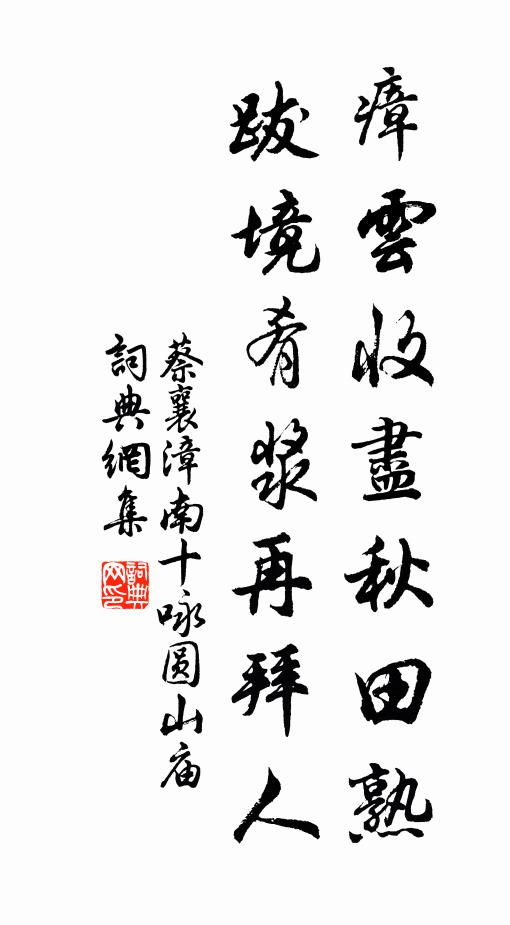 瘴雲收盡秋田熟
跋境肴漿再拜人
蔡襄漳南十咏圆山庙
詞典網集
詞典网印